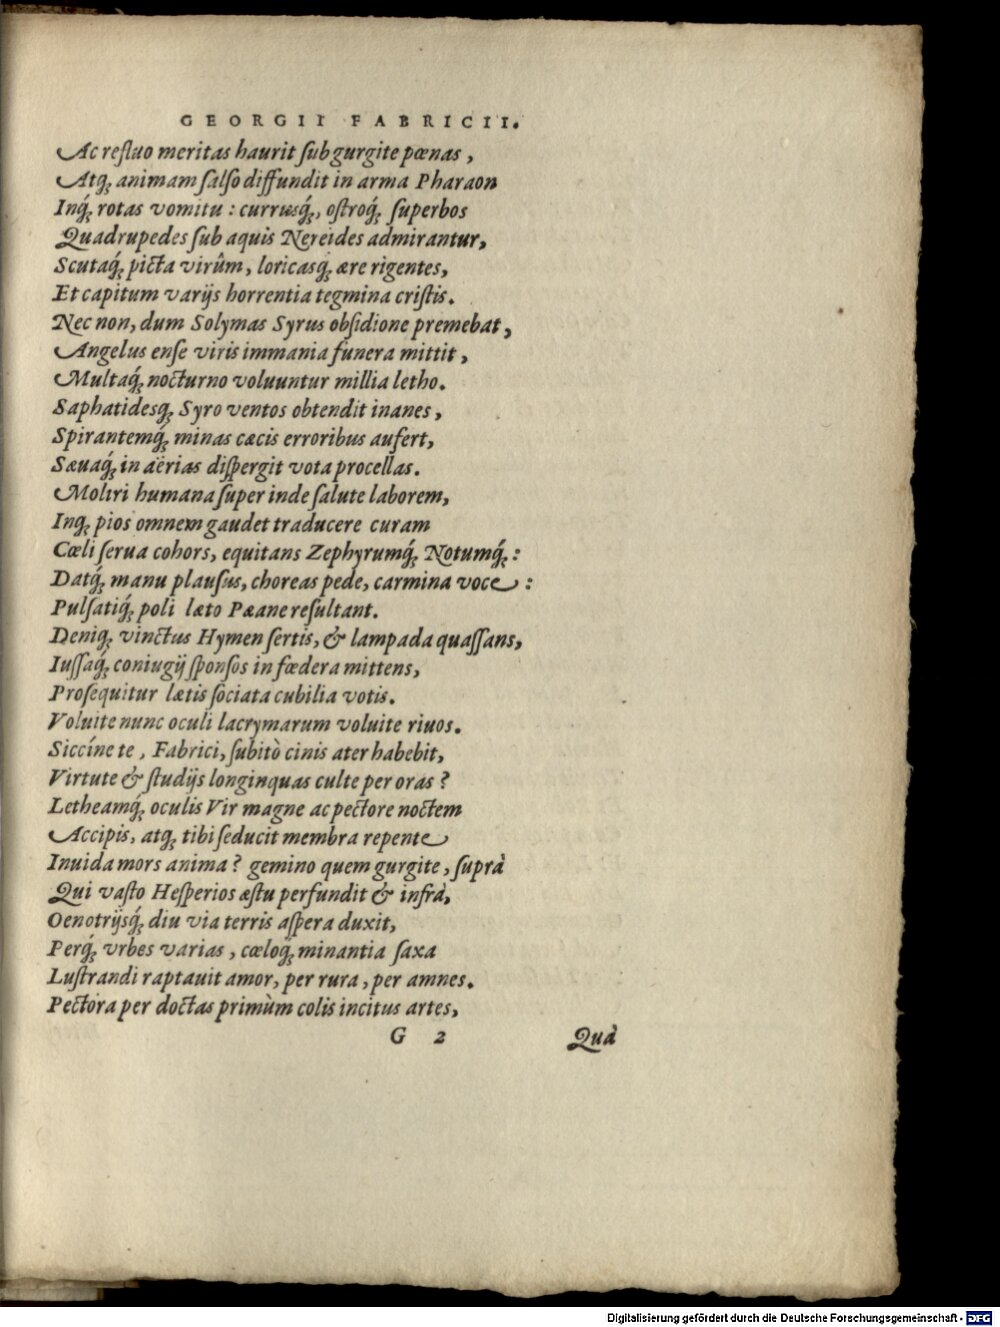 GEORGII FABRICII.
Ac refluo meritas haurit sub gurgite pœnas,
Atq́; animam salso diffundit in arma Pharaon
Inq́; rotas vomitu: currusq́;, ostroq́; superbos
Quadrupedes sub aquis Nereides admirantur,
Scutaq́; picta virûm, loricasq́; ære rigentes,
Et capitum varijs horrentia tegmina cristis.
Nec non, dum Solymas Syrus obsidione premebat,
Angelus ense viris immania funera mittit,
Multaq́; nocturno voluuntur millia letho.
Saphatidesq́; Syro ventos obtendit inanes,
Spirantemq́; minas cæcis erroribus aufert,
Sæuaq́; in aërias dispergit vota procellas.
Moliri humana super inde salute laborem,
Inq́; pios omnem gaudet traducere curam
Cœli serua cohors, equitans Zephyrumq́; Notumq́;:
Datq́; manu plausus, choreas pede, carmina voce:
Pulsatiq́; poli læto Pæane resultant.
Deniq; vinctus Hymen sertis, & lampada quassans,
Iussaq́; coniugij sponsos in fœdera mittens,
Prosequitur lætis sociata cubilia votis.
Voluite nunc oculi lacrymarum voluite riuos.
Siccíne te, Fabrici, subitò cinis ater habebit,
Virtute & studijs longinquas culte per oras?
Letheamq́; oculis Vir magne ac pectore noctem
Accipis, atq; tibi seducit membra repente
Inuida mors anima? gemino quem gurgite, suprà
Qui vasto Hesperios æstu perfundit & infrà,
Oenotrijsq́; diu via terris aspera duxit,
Perq́; vrbes varias, cœloq́; minantia saxa
Lustrandi raptauit amor, per rura, per amnes.
Pectora per doctas primùm colis incitus artes,
G 2 Quà
Digitalisierung gefördert durch die Deutsche Forschungsgemeinschaft - DFG